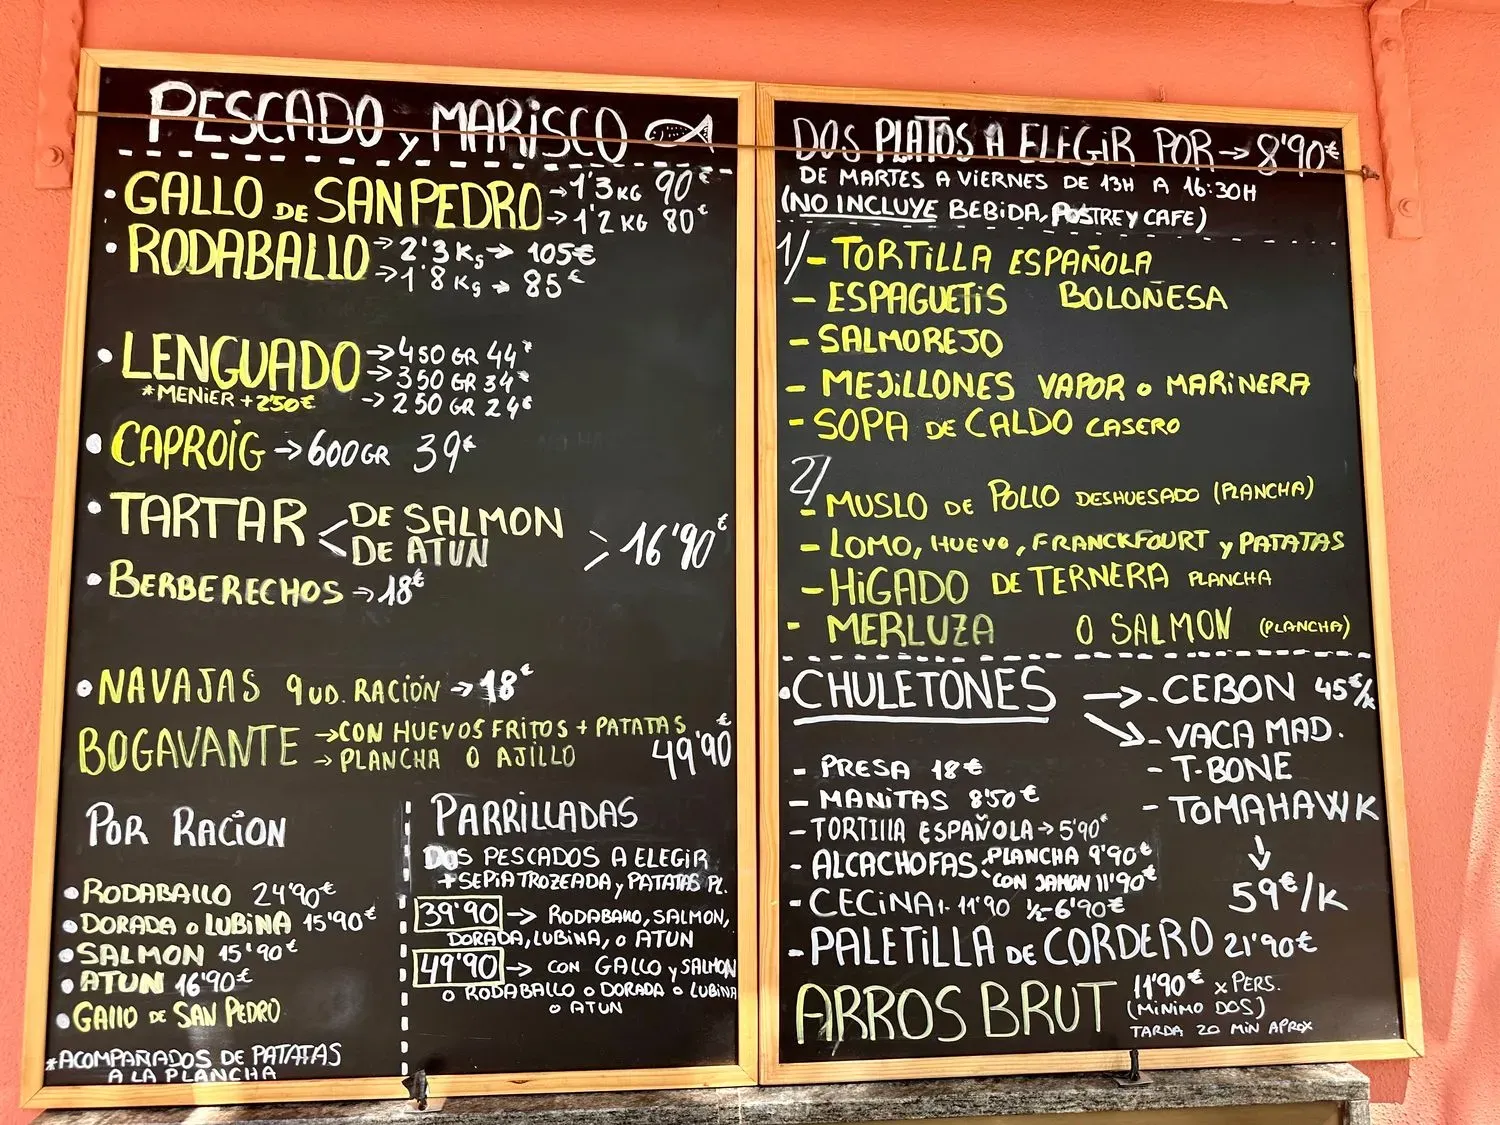 PESCADO y MARISCO
• GALLO DE SAN PEDRO → 1'3 KG 90€
→ 1'2 KG 80€
• RODABALLO → 2'3 Kg → 105€
→ 1'8 Kg → 85€
• LENGUADO → 450 GR 44€
→ 350 GR 34€
*MENIER + 2'50€ → 250 GR 24€
• CAPROIG → 600 GR 39€
• TARTAR < DE SALMON > 16'90€
DE ATUN
• BERBERECHOS → 18€
• NAVAJAS 9 UD. RACIÓN → 18€
BOGAVANTE → CON HUEVOS FRITOS + PATATAS
→ PLANCHA O AJILLO 49'90€
POR RACION
• RODABALLO 24'90€
• DORADA O LUBINA 15'90€
• SALMON 15'90€
• ATUN 16'90€
• GALLO DE SAN PEDRO
*ACOMPAÑADOS DE PATATAS
A LA PLANCHA
PARRILLADAS
DOS PESCADOS A ELEGIR
+ SEPIA TROZEADA y PATATAS PL.
39'90 → RODABALLO, SALMON,
DORADA, LUBINA, O ATUN
49'90 → CON GALLO y SALMON
O RODABALLO O DORADA O LUBINA
O ATUN
DOS PLATOS A ELEGIR POR → 8'90€
DE MARTES A VIERNES DE 13H A 16:30H
(NO INCLUYE BEBIDA, POSTRE Y CAFE)
1/ - TORTILLA ESPAÑOLA
- ESPAGUETIS BOLOÑESA
- SALMOREJO
- MEJILLONES VAPOR O MARINERA
- SOPA DE CALDO CASERO
2/
- MUSLO DE POLLO DESHUESADO (PLANCHA)
- LOMO, HUEVO, FRANCKFOURT y PATATAS
- HIGADO DE TERNERA PLANCHA
- MERLUZA O SALMON (PLANCHA)
• CHULETONES → - CEBON 45€/K
→ - VACA MAD.
- T-BONE
- TOMAHAWK
↓
59€/K
- PRESA 18€
- MANITAS 8'50€
- TORTILLA ESPAÑOLA → 5'90€
- ALCACHOFAS: PLANCHA 9'90€
CON JAMON 11'90€
- CECINA 1- 11'90 ½-6'90€
- PALETILLA DE CORDERO 21'90€
ARROS BRUT 11'90€ x PERS.
(MINIMO DOS)
TARDA 20 MIN APROX